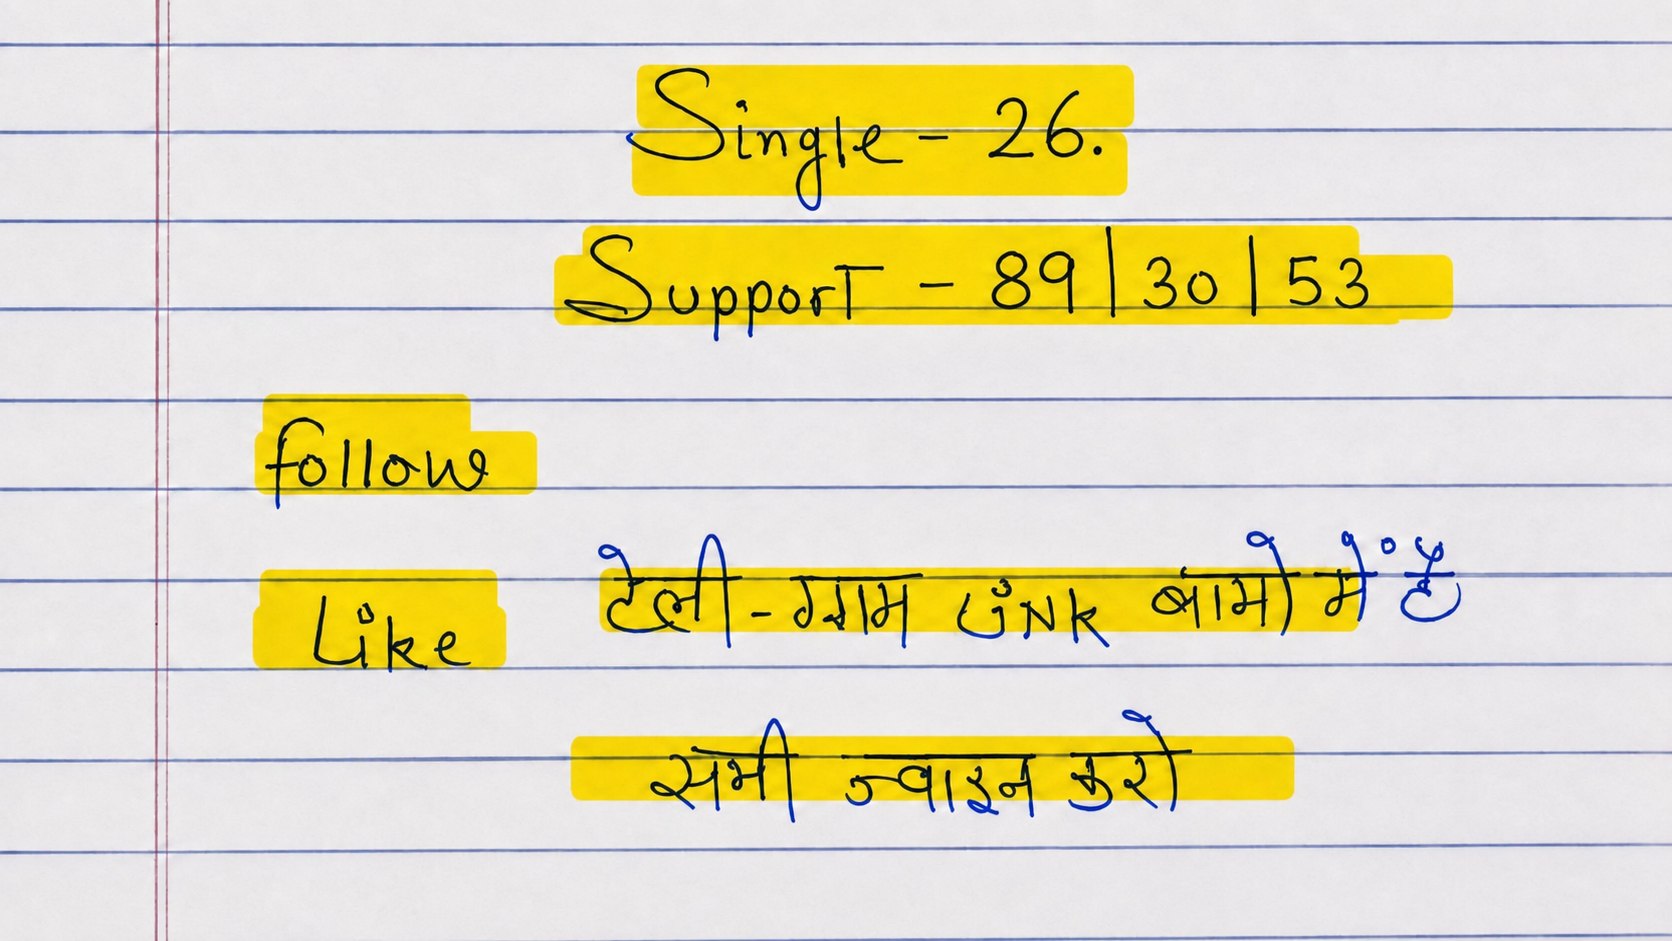 Single - 26.
Support - 89|30|53
follow
Like
टेली-ग्राम Link बामो में है
सभी ज्वाइन करो